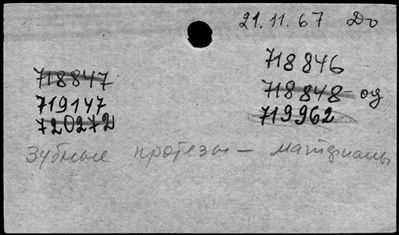 21.11.67 До
718847
719147
720272
718846
718848 од
719962
Зубные протезы – материалы